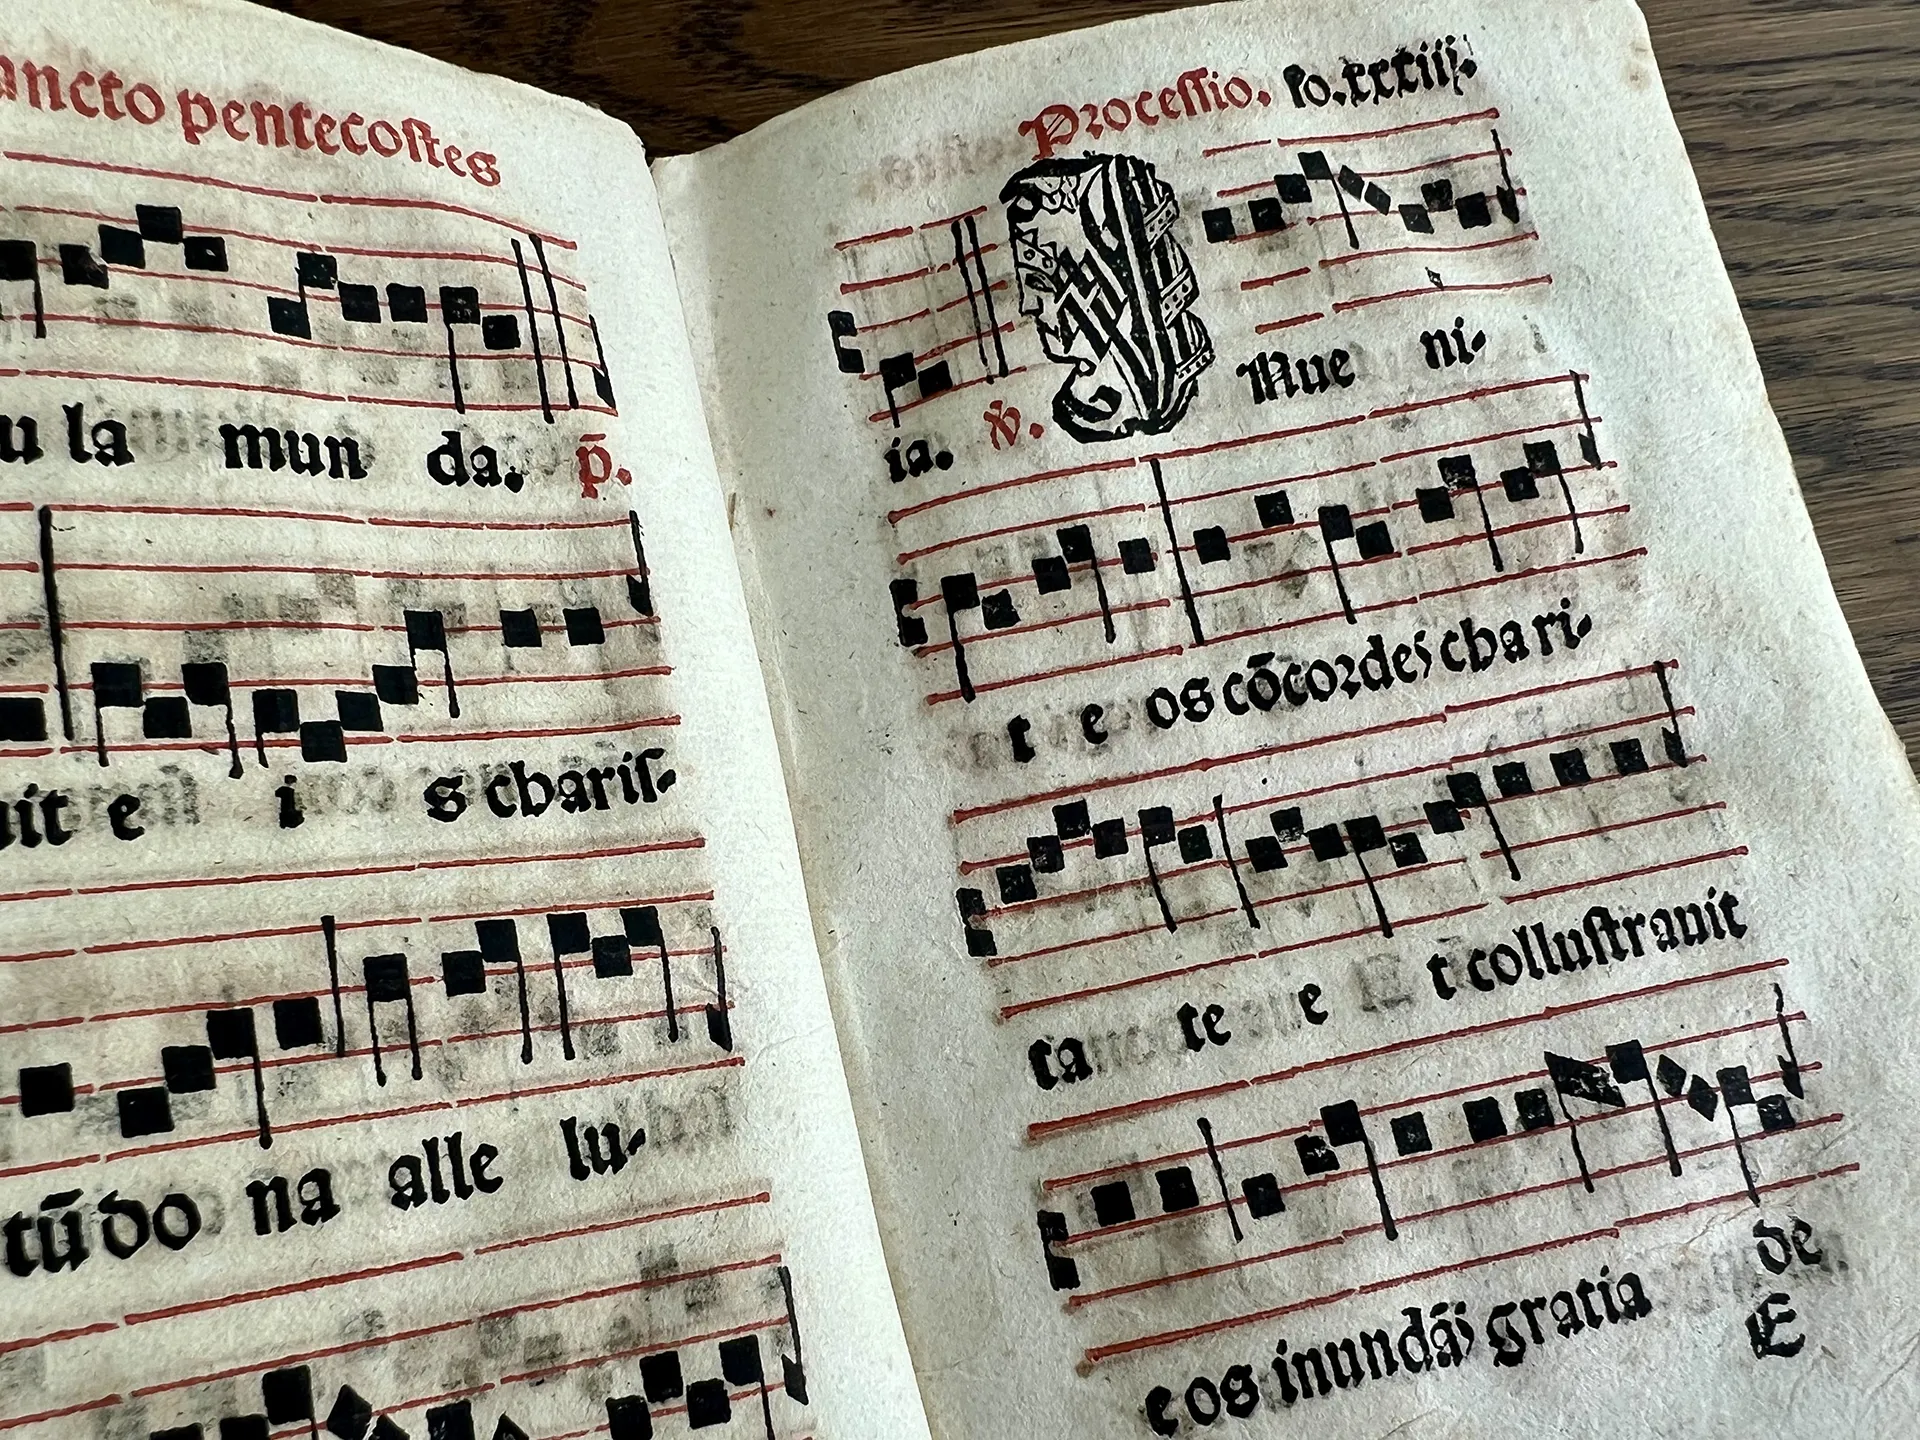 ancto pentecoſtes
u la mun da. p̄.
uit e i s chariſ-
tū do na alle lu-
Proceſſio. Fo.xxxiiij.
ia. ℣. INue ni-
t e os cōcordeſ cha ri-
ta te e t colluſtrauit
eos inundāſ gratia de
E